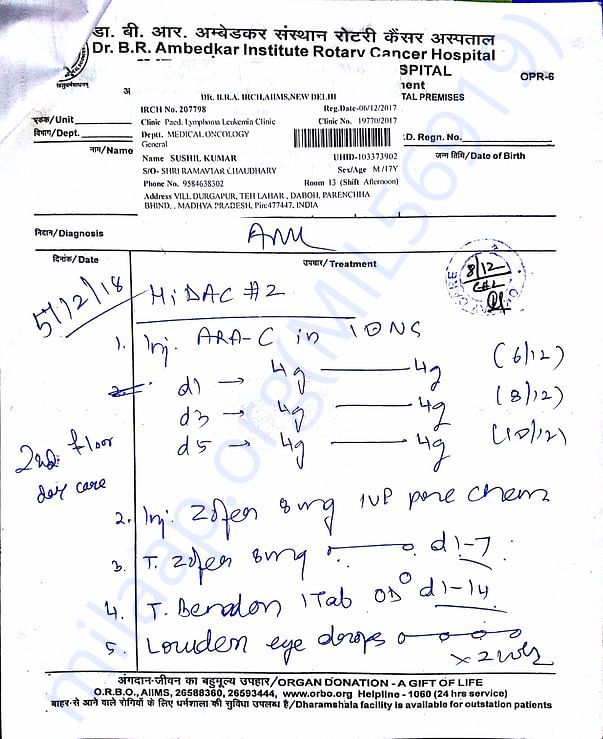 डा. बी. आर. अम्बेडकर संस्थान रोटरी कैंसर अस्पताल
Dr. B.R. Ambedkar Institute Rotary Cancer Hospital
SPITAL
OPR-6
अ
TAL PREMISES
DR. B.R.A. IRCH,AIIMS,NEW DELHI
IRCH No. 207798 Reg.Date-06/12/2017
एकक/Unit
Clinic Paed. Lymphoma Leukemia Clinic Clinic No. 19770/2017
विभाग/Dept.
Deptt. MEDICAL ONCOLOGY
General
.D. Regn. No.
नाम/Name
Name SUSHIL KUMAR UHID-103373902
जन्म तिथि/Date of Birth
S/O- SHRI RAMAVTAR CHAUDHARY Sex/Age M/17Y
Phone No. 9584638302 Room 13 (Shift Afternoon)
Address VILL DURGAPUR, TEH LAHAR, DABOH, PARENCHHA
BHIND, , MADHYA PRADESH, Pin:477447, INDIA
निदान/Diagnosis
AML
दिनांक/Date
उपचार/Treatment
8/12
C#2
5/12/18
HiDAC #2
1. Inj. ARA-C in NS
d1 → 4g 4g (6/12)
d3 → 4g 4g (8/12)
d5 → 4g 4g (10/12)
2nd floor
day care
2. Inj. Zofer 8mg IVP chemo
3. T. Zofer 8mg d1-7
4. T. Benadon 1 Tab OD d1-14
5. eye drops
x 2 wks
अंगदान-जीवन का बहुमूल्य उपहार/ORGAN DONATION - A GIFT OF LIFE
O.R.B.O., AIIMS, 26588360, 26593444, www.orbo.org Helpline - 1060 (24 hrs service)
बाहर-से आने वाले रोगियों के लिए धर्मशाला की सुविधा उपलब्ध है/Dharamshala facility is available for outstation patients
milaap.org(MIL56919)